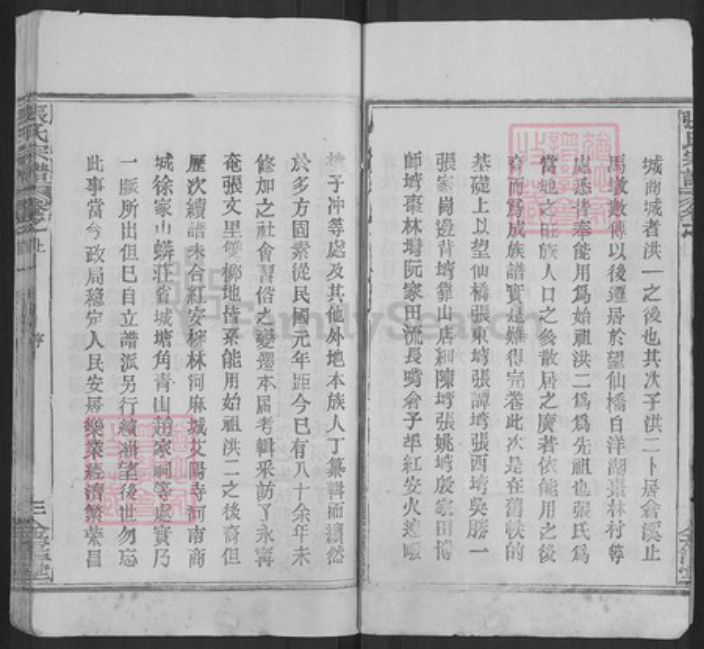 城商城者洪一之後也其次子洪二卜居倉溪止
馬墩數傳以後遷居於望仙橋白洋湖棗林村等
處悉皆奉能用爲始祖洪二爲爲先祖也張氏爲
當地之旺族人口之發散居之廣若依能用之後
裔而爲成族譜實是難得完卷此次是在舊帙的
基礎上以望仙橋張東塆張譚塆張西塆吳勝一
張家崗邊背塆靠山店細陳塆張姚塆殷家田博
師塆棗林塆阮家田流長嘴倉子埠紅安火連畈
子冲等處及其他外地本族人丁纂輯而續然
於多方因素從民國元年距今已有八十余年未
修加之社會習俗之變遷本届考輯采訪了永寧
奄張文里雙柳地皆系能用始祖洪二之後裔但
歷次續譜未合紅安柳林河麻城艾陽寺河南商
城徐家山蟒莊省城塘角青山趙家祠等處實乃
一脈所出但已自立譜派另行續譜望後世勿忘
此事當今政局穩定人民安居樂業經濟繁榮昌
張氏宗譜
卷之上
序
三
張氏宗譜
卷之上
FamilySearch